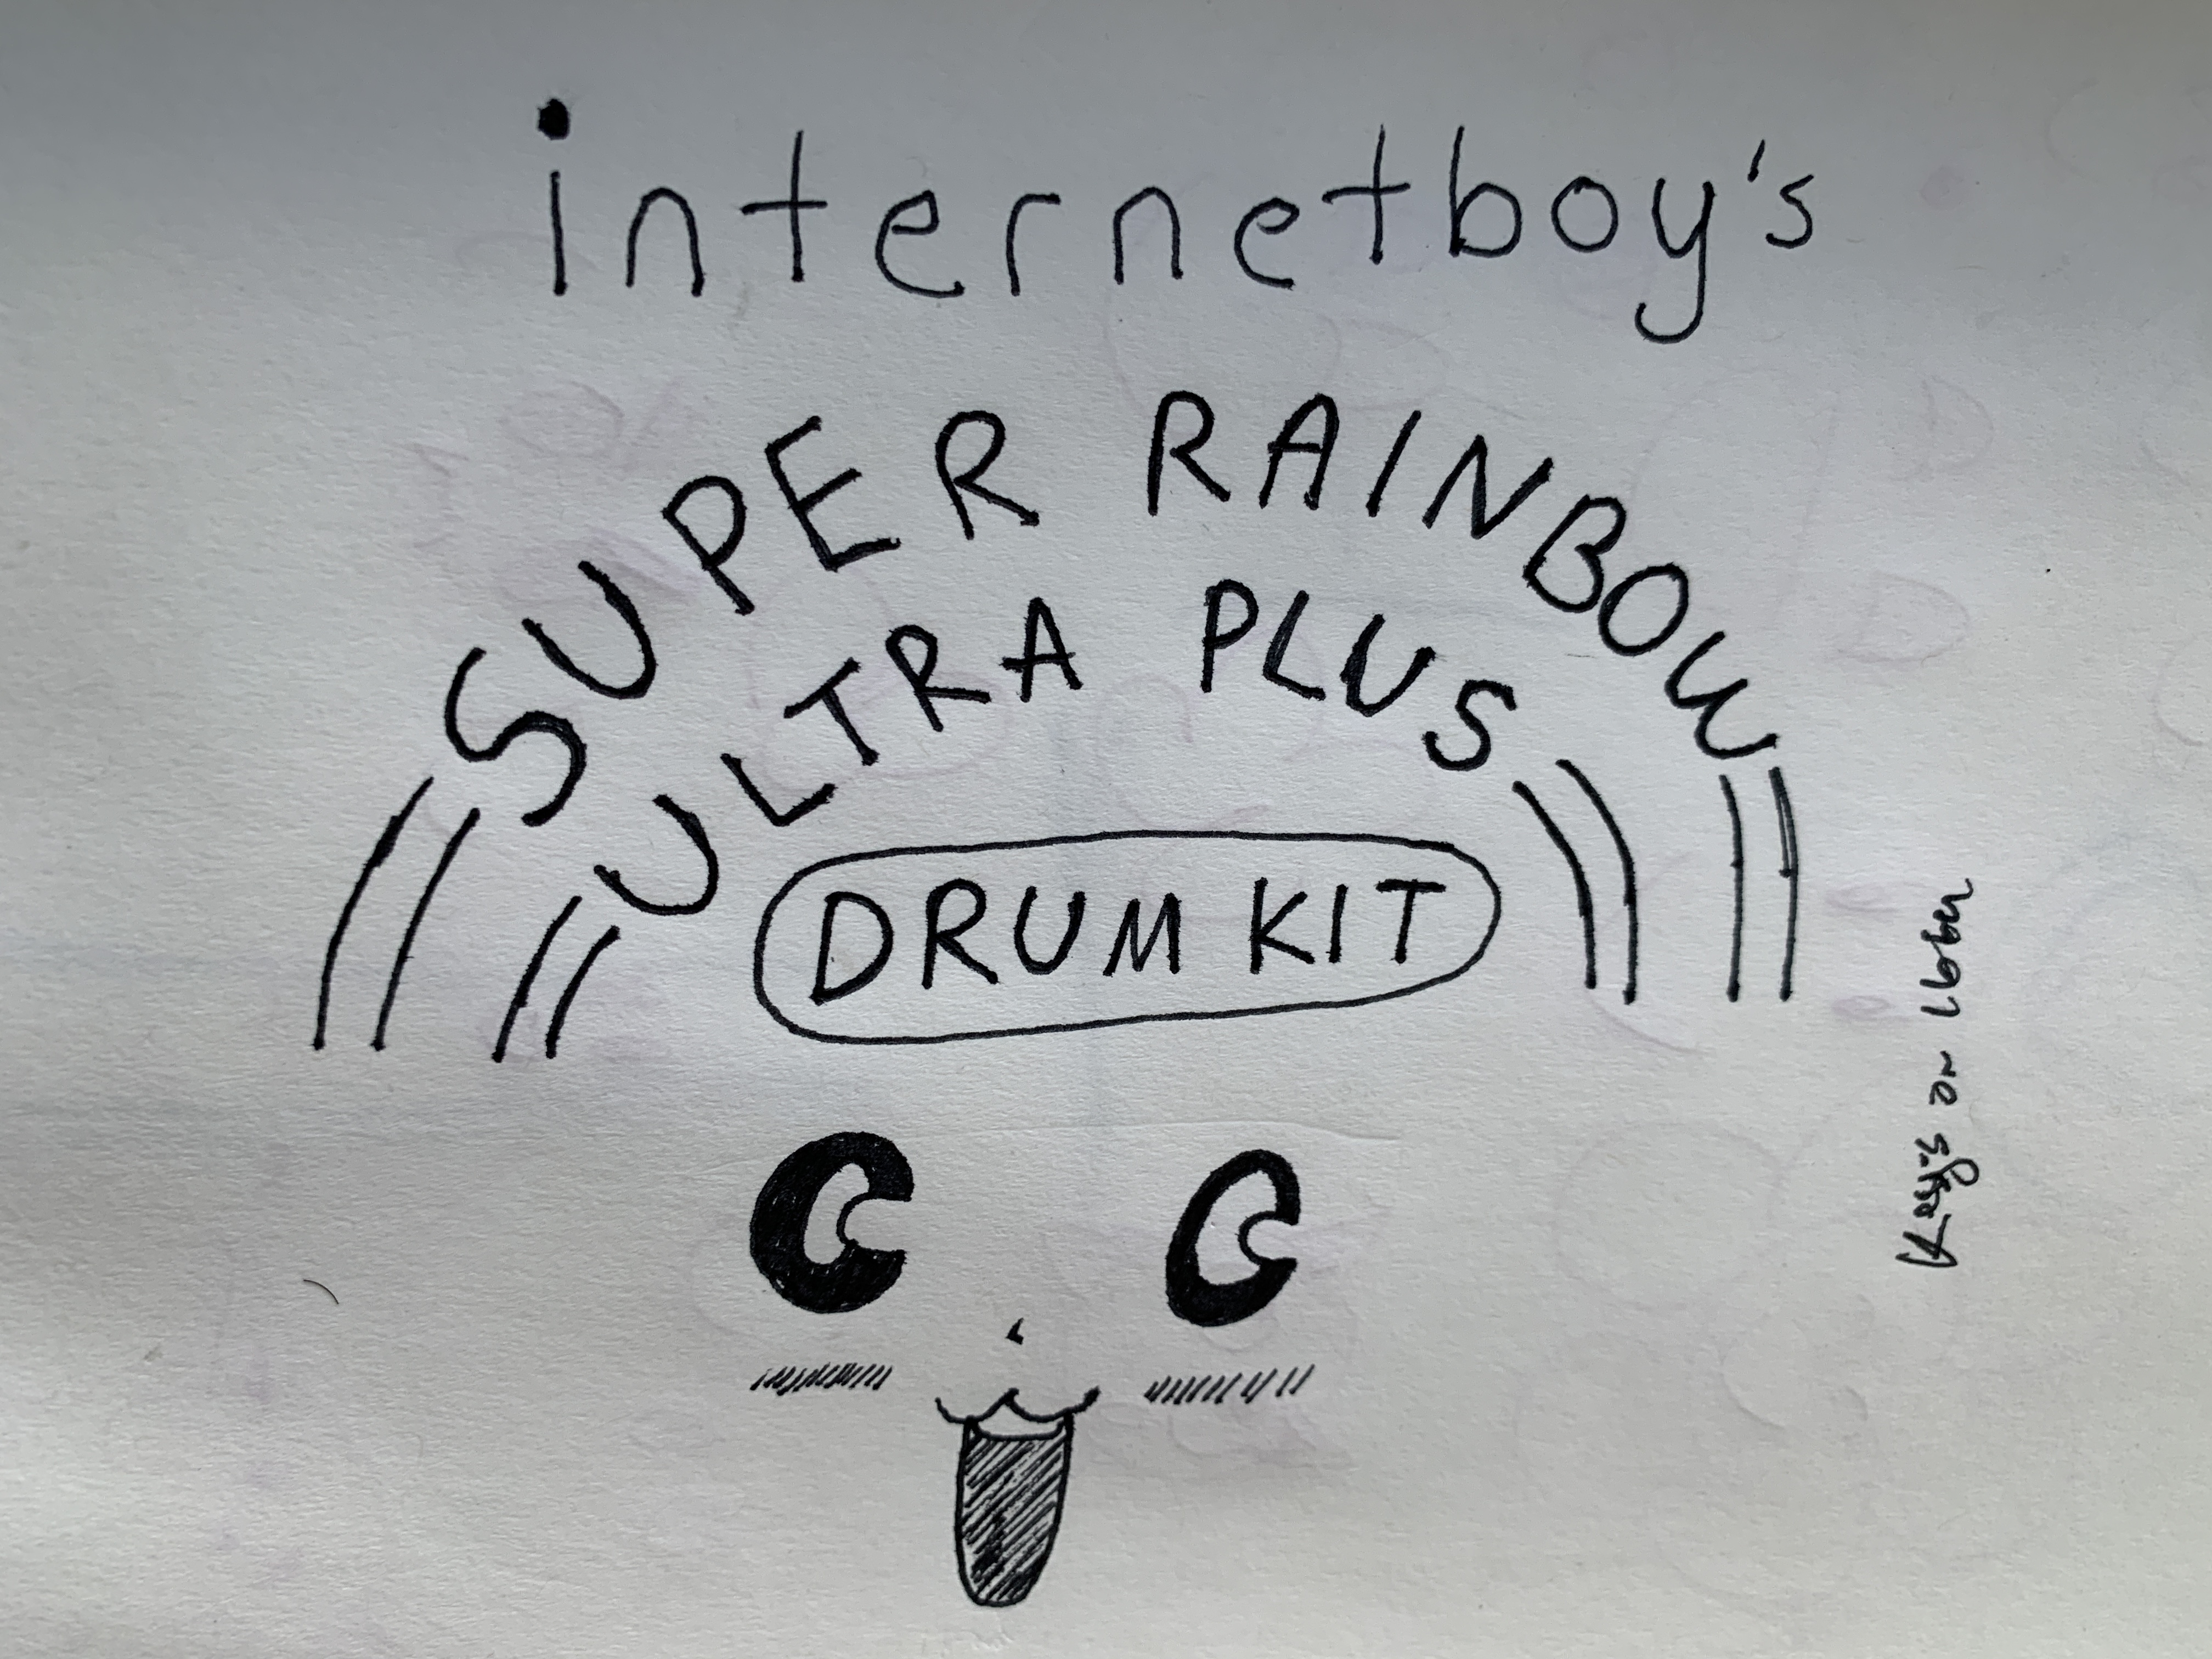 internetboy's
SUPER RAINBOW
ULTRA PLUS
DRUM KIT
on